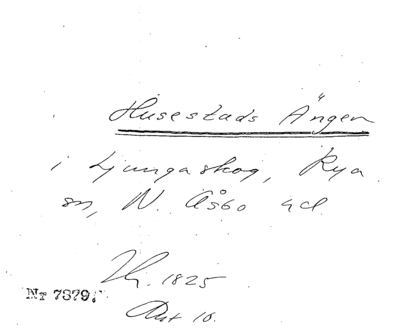 Husestads Ängen
i Ljungaskog, Rya
sn, N. Åsbo hd
1825
Nr 7879.
Akt 10.